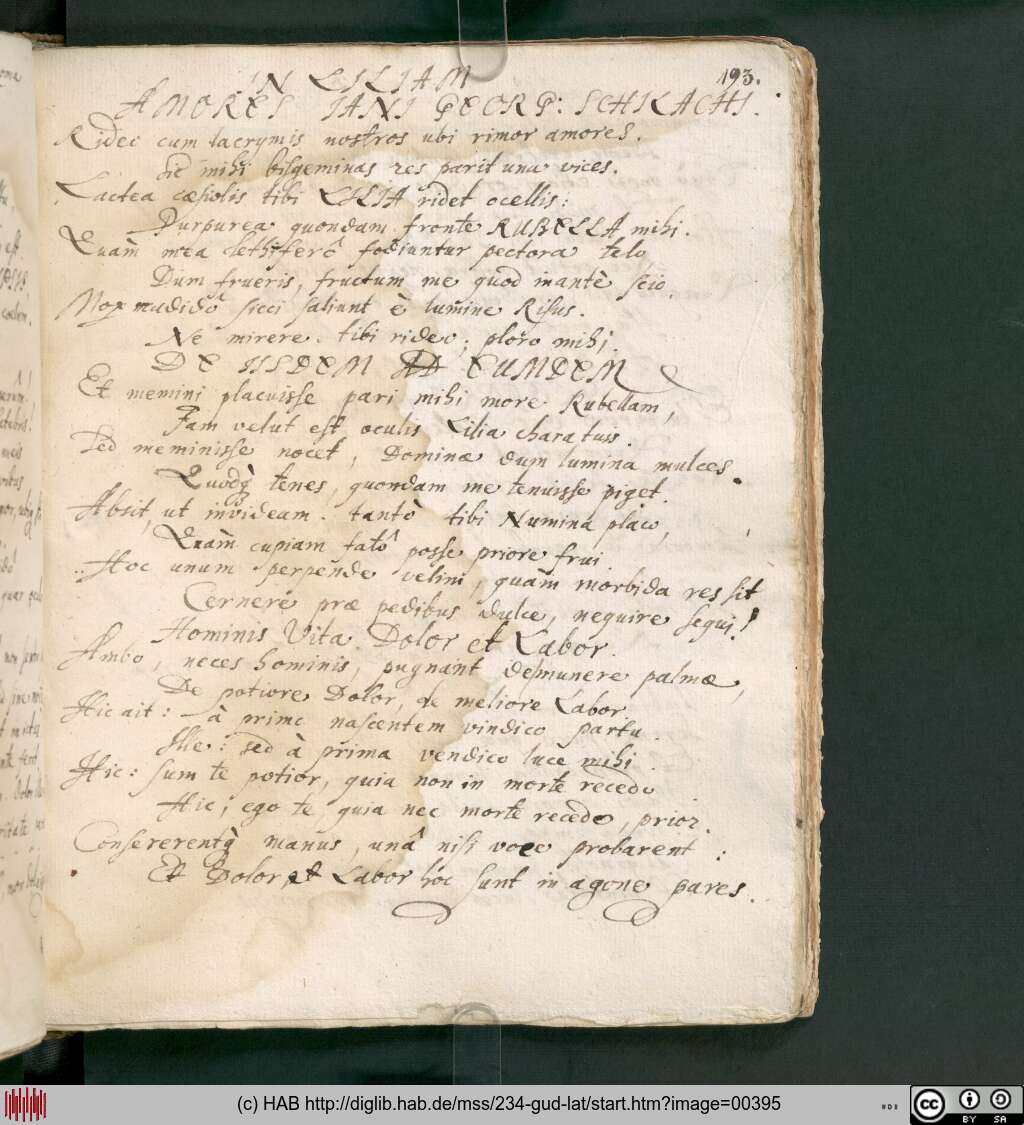 193.
IN LILIAM
AMORES IANI GEORG: SCHKACHI.
Rideo cum lacrymis nostros ubi rimor amores.
Sic mihi bisgeminas res parit una vices.
Lactea cæsiolis tibi LILIA ridet ocellis:
Purpurea quondam fronte RUBELLA mihi.
Quam mea lethiferô fodiuntur pectora telo,
Dum frueris, fructum me quod inantè scio.
Mox madidô sicci saliunt è lumine Risus.
Ne mirere. tibi rideo; ploro mihi.
DE IISDEM AD EUMDEM
Et memini placuisse pari mihi more Rubellam,
Jam velut est oculis Lilia chara tuis.
Sed meminisse nocet, Dominæ dum lumina mulces.
Quodq̀ tenes, quondam me tenuisse piget.
Absit, ut invideam. tantò tibi Numina placo,
Quam cupiam fatô posse priore frui.
Hoc unum perpende velim, quàm morbida res sit
Cernere præ pedibus dulce, nequire sequi!
Hominis Vita Dolor et Labor.
Ambo, neces hominis, pugnant de munere palmæ,
De potiore Dolor, de meliore Labor.
Hic ait: à primo nascentem vindico partu.
Ille: sed à prima vendico luce mihi.
Hic: sum te potior, quia non in morte recedo
Hic; ego te, quia nec morte recedo, prior.
Consererentq̀ manus, unâ nisi voce probarent:
Et Dolor, et Labor hôc sunt in agone pares.
(c) HAB http://diglib.hab.de/mss/234-gud-lat/start.htm?image=00395
cc BY SA